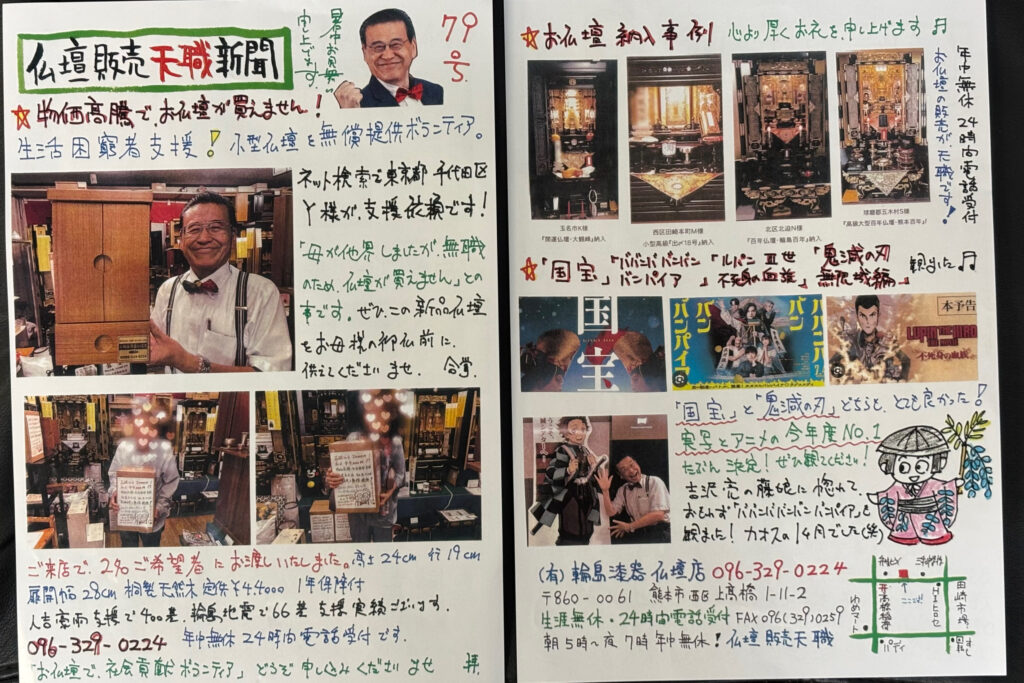 仏壇販売天職新聞
暑中お見舞い
申し上げます。
79号
☆物価高騰でお仏壇が買えません!
生活困窮者支援!小型仏壇を無償提供ボランティア。
ネット検索で東京都千代田区
Y様が、支援依頼です!
「母が他界しましたが、無職
のため、仏壇が買えません」との
事です。ぜひ、この新品仏壇
をお母様の御仏前に、
供えてくださいませ。合掌
ご来店で、2名ご希望者にお渡しいたしました。高さ24cm行19cm
扉開幅28cm桐製天然木定価¥44000 1年保障付
人吉豪雨支援で400基、輪島地震で66基支援実績ございます。
096-329-0224 年中無休24時間電話受付です。
「お仏壇で、社会貢献ボランティア」どうぞ申し込みくださいませ 拝.
☆お仏壇納入事例 心より厚くお礼を申し上げます♬
年中無休24時間電話受付
お仏壇の販売が天職です!
玉名市K様
『開運仏壇・大観峰』納入
西区田崎本町M様
小型高級『出〆18号』納入
北区北迫N様
『百年仏壇・輪島百年』納入
球磨郡五木村S様
『高級大型百年仏壇・熊本百年』
☆「国宝」「ババンババンバンバンパイア」「ルパンⅢ世不死身の血族」「鬼滅の刃無限城編」観ました♬
国宝
バンババンバンバンパイア
本予告
LUPIN THE IIIRD
不死身の血族
「国宝」と「鬼滅の刃」どちらも、とても良かった!
実写とアニメの今年度NO.1
たぶん決定!ぜひ観てください!
吉沢亮の藤娘に惚れて、
おもわず「ババンババンバンバンパイア」も
観ました!カオスの1ヶ月でした(笑)
(有)輪島漆器仏壇店 096-329-0224
〒860-0061 熊本市西区上高橋1-11-2
生涯無休・24時間電話受付 FAX096(329)0259
朝5時〜夜7時年中無休!仏壇販売天職
高橋稲荷
ゆめマート
ここだよ
HIヒロセ
田崎市場